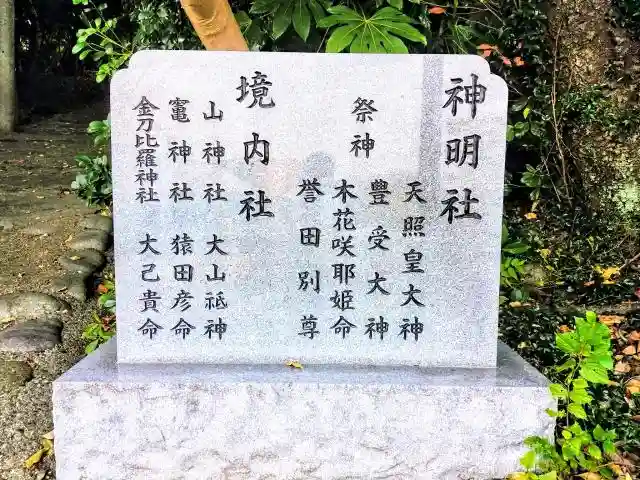 神明社
祭神
天照皇大神
豊受大神
木花咲耶姫命
誉田別尊
境内社
山神社 大山祗神
竃神社 猿田彦命
金刀比羅神社 大己貴命